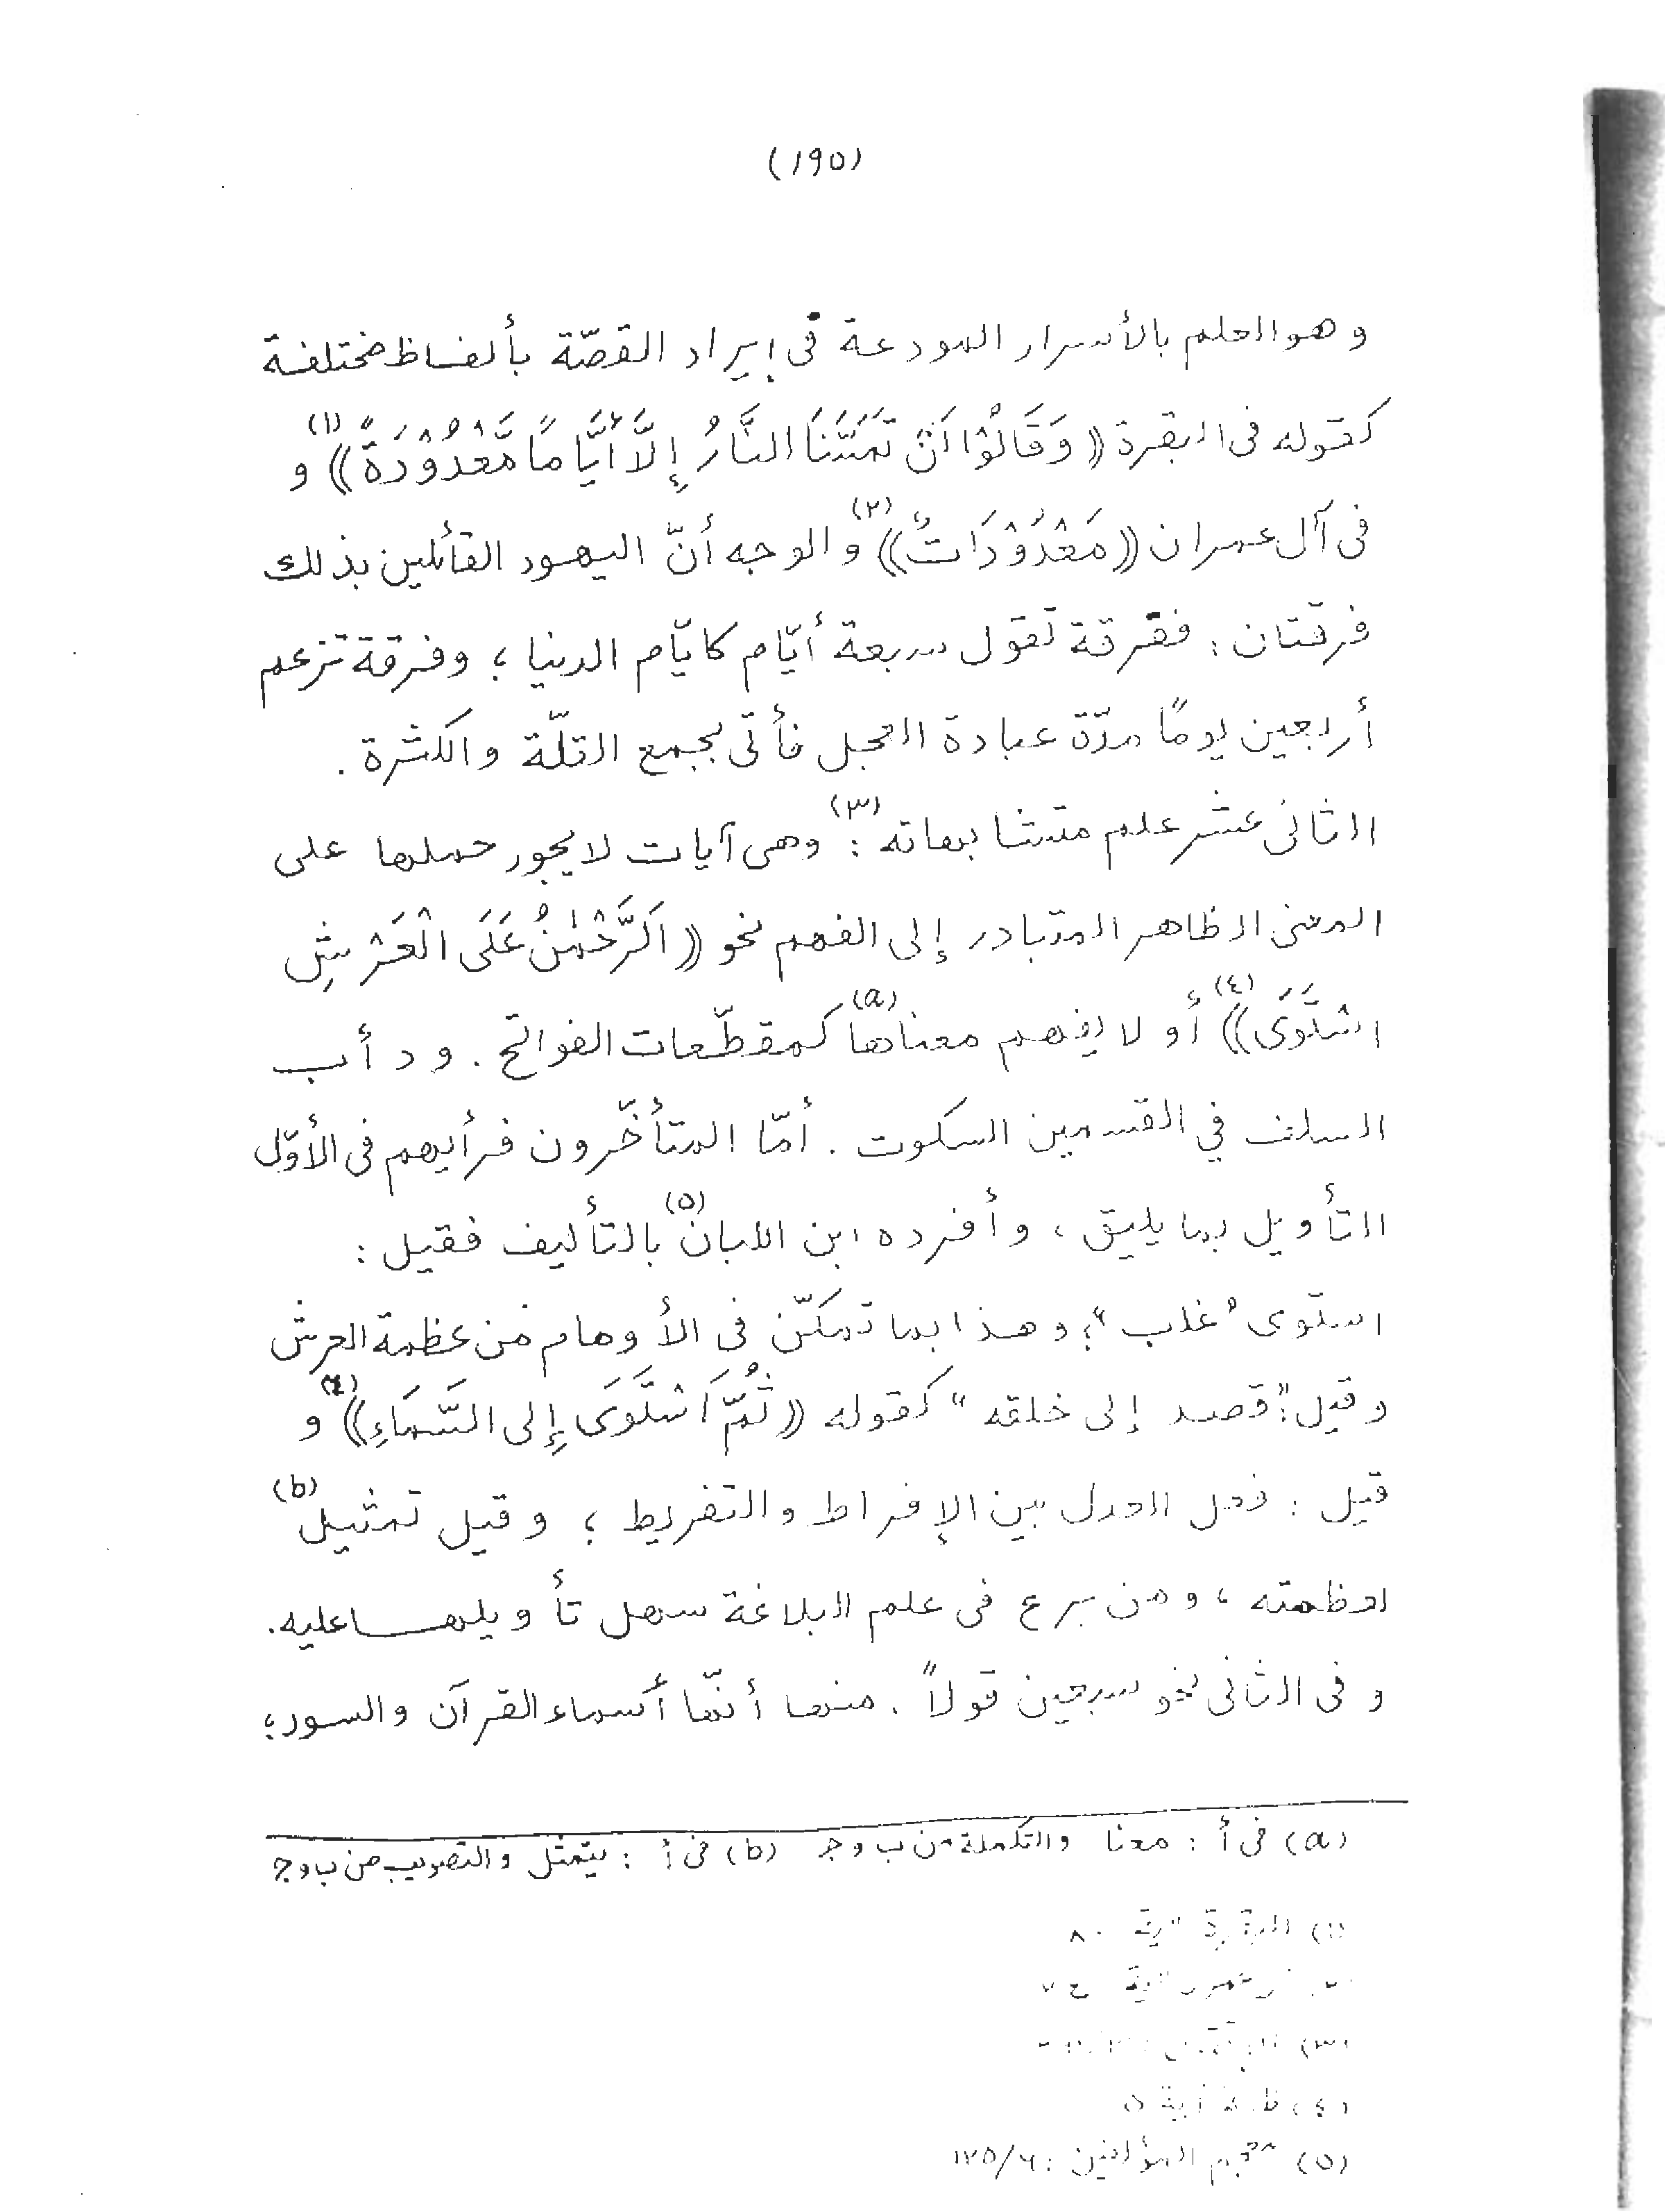 (١٩٥)
وهو العلم بالأسرار المودعة في إيراد القصّة بألفاظ مختلفة
كقوله فى البقرة ((وَقَالُوْا لَنْ تَمَسَّنَا النَّارُ إِلَّا أَيَّامًا مَّعْدُوْدَةً))(١) و
فى آل عمران ((مَعْدُوْدَاتٌ))(٢) والوجه أنّ اليهود القائلين بذلك
فرقتان : ففرقة تقول سبعة أيّام كايّام الدنيا ؛ وفرقة تزعم
أربعين يومًا مدّة عبادة العجل فأتى بجمع القلّة والكثرة .
الثانى عشر علم متشابهاته(٣) : وهى آيات لا يجوز حملها على
المعنى الظاهر المتبادر إلى الفهم نحو ((اَلرَّحْمٰنُ عَلَى الْعَرْشِ
اسْتَوَى))(٤) أو لا يفهم معناها(a) كمقطّعات الفواتح . ودأب
السلف في القسمين السكوت . أمّا المتأخّرون فرأيهم فى الأوّل
التأويل بما يليق ، وأفرده ابن اللبان(٥) بالتأليف فقيل :
استوى "غلب" ؛ وهذا بما تمكّن فى الأوهام من عظمة العرش
وقيل : "قصد إلى خلقه" كقوله ((ثُمَّ اَسْتَوَى إِلى السَّمَاءِ))(٤) و
قيل : فعل العدل بين الإفراط والتفريط ؛ وقيل تمثيل(b)
لعظمته ، ومن برع فى علم البلاغة سهل تأويلها عليه .
وفى الثانى نحو سبعين قولاً . منها أنّها أسماء القرآن والسور ؛
(a) فى أ : معنا والتكملة من ب وجـ (b) فى أ : يتمثل والتصويب من ب وجـ
(١) البقرة آية ٨٠
عمران آية
(٣)
(٤) طه آية ٥
(٥) معجم المؤلفين :